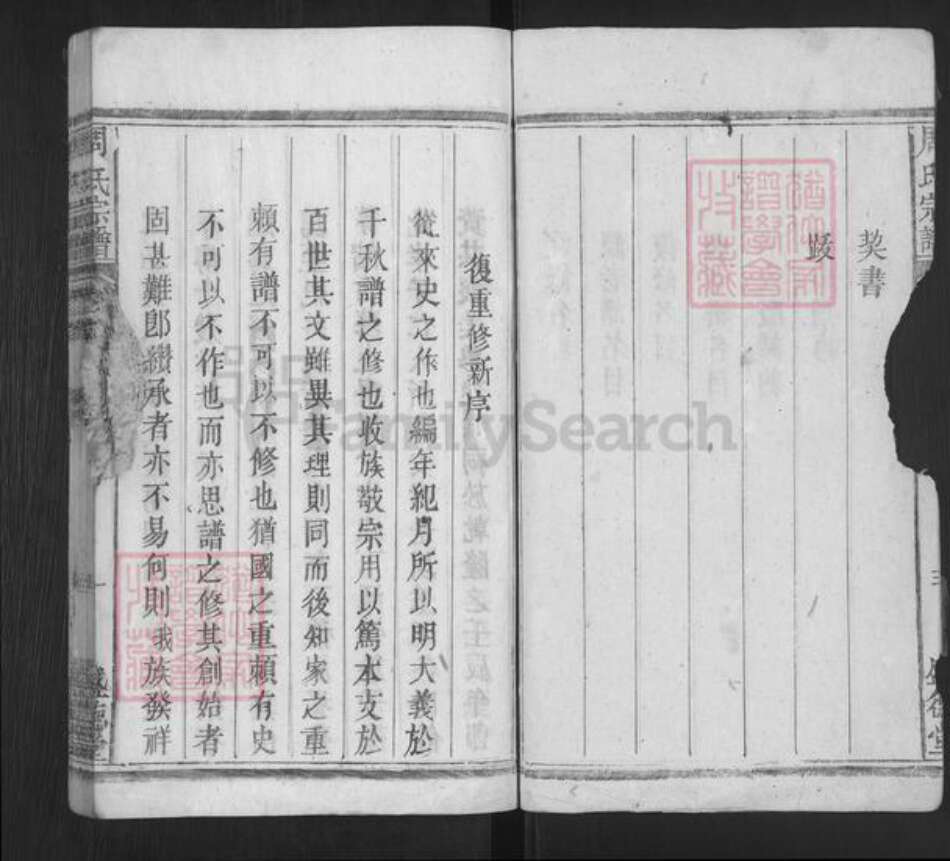 契書
跋
周氏宗譜
復重修新序
從來史之作也編年紀月所以明大義於
千秋譜之修也收族敬宗用以篤本支於
百世其文雖異其理則同而後知家之重
賴有譜不可以不修也猶國之重賴有史
不可以不作也而亦思譜之修其創始者
固甚難卽纘承者亦不易何則我族發祥
周氏宗譜
一
盛德堂
FamilySearch